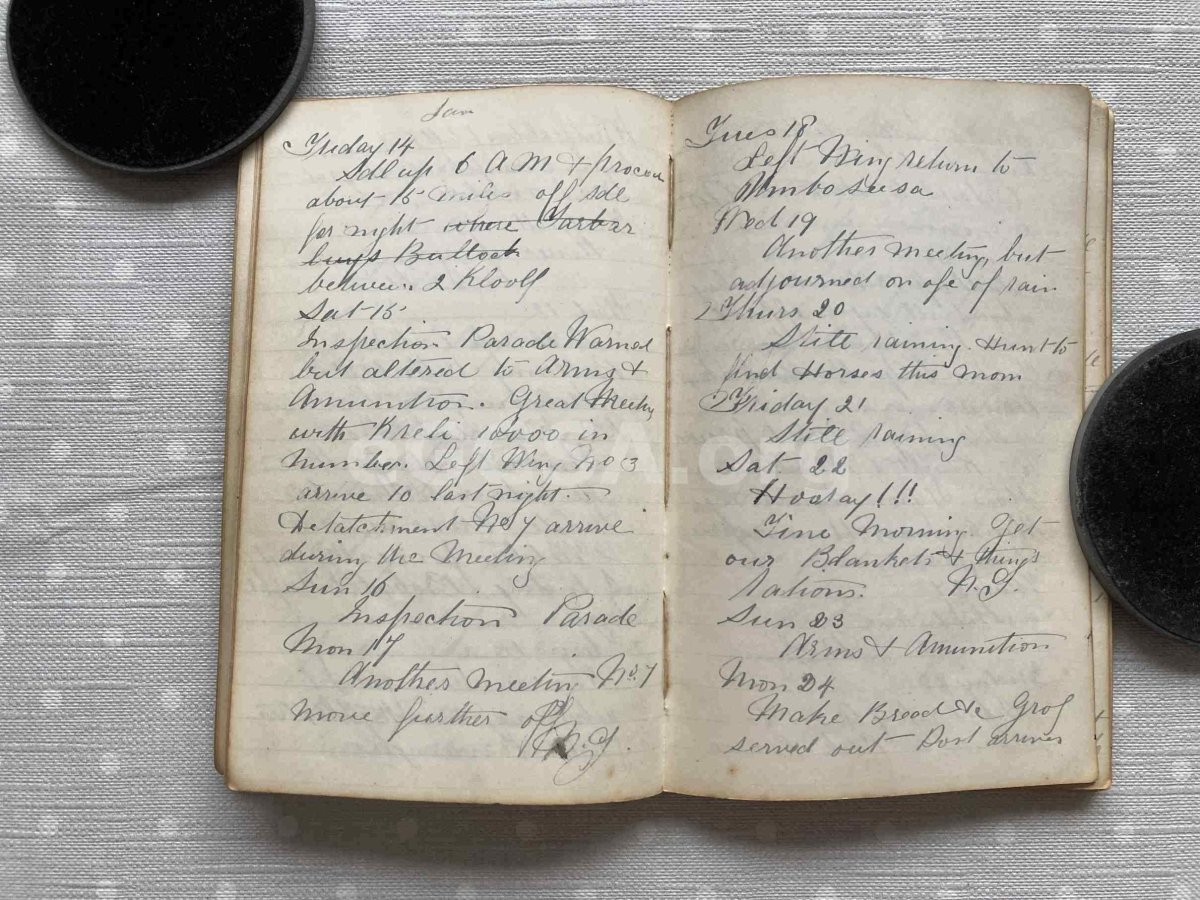 Jan
Friday 14
Sdl up 6 A M & proceed
about 15 miles off sdl
for night where Yarbar
buys Bullock
between 2 Kloofs
Sat 15
Inspection Parade Warned
but altered to Arms &
Amunition. Great Meeting
with Kreli 10000 in
number. Left Wing No 3
arrive 10 last night.
Detatchment No 7 arrive
during the Meeting
Sun 16
Inspection Parade
Mon 17
Another meeting No. 7
move further off
N. G.
Tues 18
Left Wing return to
Wed 19
Another meeting, but
adjourned on a/c of rain
Thurs 20
Still raining. Hunt to
find Horses this morn
Friday 21
Still raining
Sat. 22
Hooray!!!
Fine Morning Get
our Blankets & things
Rations. N. G.
Sun 23
Arms & Amunition
Mon 24
Make Bread &c Grog
served out Post arrives